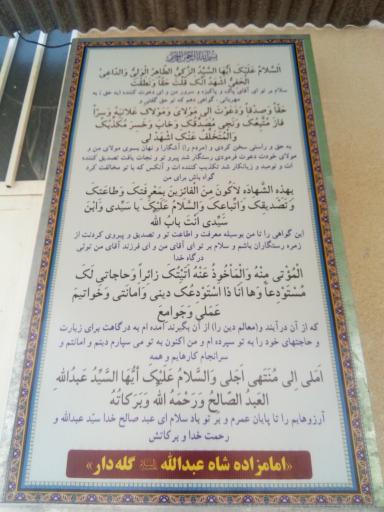 بسم الله الرحمن الرحیم
اَلسَّلامُ عَلَیْکَ اَیُّهَا السَّیِّدُ الزَّکِیُّ الطّاهِرُ الْوَلِیُّ وَالدّاعِی
الْحَفِیُّ اَشْهَدُ اَنَّکَ قُلْتَ حَقّاً وَنَطَقْتَ
سلام بر تو ای آقای پاک و پاکیزه و سرور من و ای دعوت کننده (به حق) به
مهربانی، گواهی دهم که تو حق گفتی و
حَقّاً وَصِدْقاً وَدَعَوْتَ اِلی مَوْلایَ وَمَوْلاکَ عَلانِیَةً وَسِرّاً
فازَ مُتَّبِعُکَ وَنَجی مُصَدِّقُکَ وَخابَ وَخَسِرَ مُکَذِّبُکَ
وَالْمُتَخَلِّفُ عَنْکَ اِشْهَدْ لی
به حق و راستی سخن کردی و (مردم را) آشکارا و نهان بسوی مولای من و
مولای خودت دعوت فرمودی رستگار شد پیرو تو و نجات یافت تصدیق کننده
ات و نومید و زیانکار شد تکذیب کننده ات و آنکس که با تو مخالفت کرد
گواه باش برای من
بِهذِهِ الشَّهادَهِ لاَکُونَ مِنَ الْفائِزینَ بِمَعْرِفَتِکَ وَطاعَتِکَ
وَتَصْدیقِکَ وَاتِّباعِکَ وَالسَّلامُ عَلَیْکَ یا سَیِّدی وَابْنَ
سَیِّدی اَنْتَ بابُ اللهِ
این گواهی را تا من بوسیله معرفت و اطاعت تو و تصدیق و پیروی کردنت از
زمره رستگاران باشم و سلام بر تو ای آقای من و ای فرزند آقای من توئی
درگاه خدا
الْمُؤْتی مِنْهُ وَالْمَأْخُوذُ عَنْهُ اَتَیْتُکَ زائِراً وَحاجاتی لَکَ
مُسْتَوْدِعاً وَها اَنَا ذا اَسْتَوْدِعُکَ دینی وَاَمانَتی وَخَواتیمَ
عَمَلی وَجَوامِعَ
که از آن درآیند و(معالم دین را) از آن بگیرند آمده ام به درگاهت برای زیارت
و حاجتهای خود را به تو سپرده ام و من اکنون به تو می سپارم دینم و امانتم و
سرانجام کارهایم و همه
اَمَلی اِلی مُنْتَهی اَجَلی وَالسَّلامُ عَلَیْکَ اَیُّهَا السَّیِّدُ عَبْدُاللهِ
العَبدُ الصّالِحُ وَرَحْمَهُ اللهِ وَبَرَکاتُهُ
آرزوهایم را تا پایان عمرم و بر تو باد سلام ای عبد صالح خدا سیّد عبدالله و
رحمت خدا و برکاتش
«امامزاده شاه عبدالله گله‌دار»